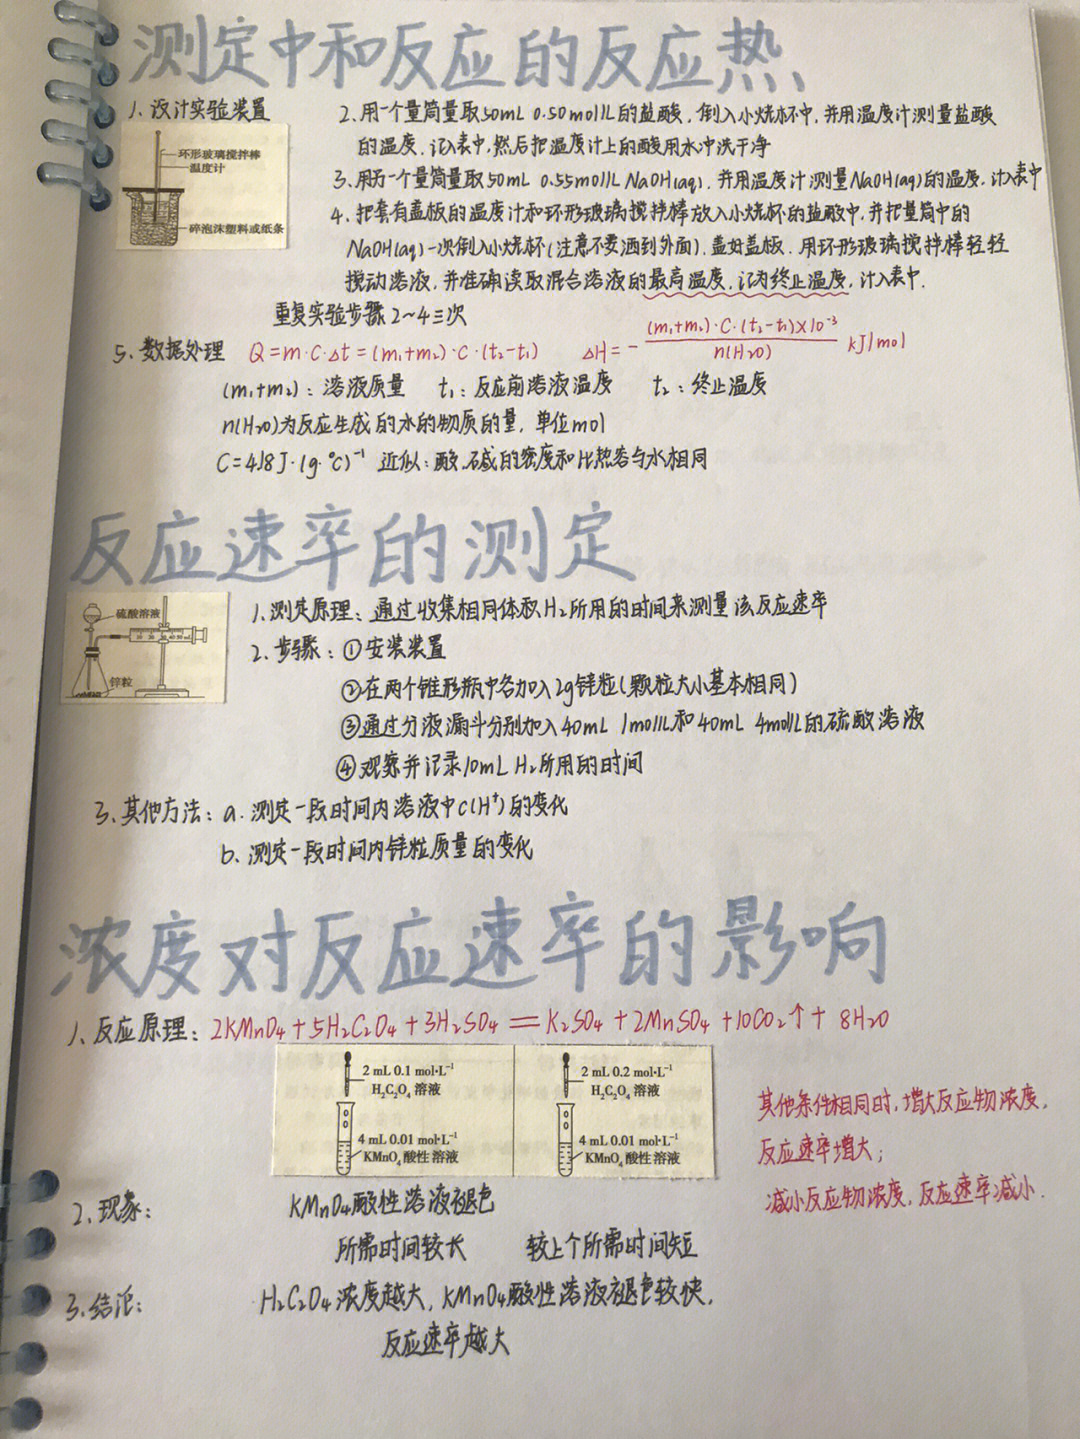 测定中和反应的反应热
1、设计实验装置
环形玻璃搅拌棒
温度计
碎泡沫塑料或纸条
2、用一个量筒量取50mL 0.50mol/L的盐酸，倒入小烧杯中，并用温度计测量盐酸
的温度，记入表中，然后把温度计上的酸用水冲洗干净
3、用另一个量筒量取50mL 0.55mol/L NaOH(aq)，并用温度计测量NaOH(aq)的温度，计入表中
4、把套有盖板的温度计和环形玻璃搅拌棒放入小烧杯的盐酸中，并把量筒中的
NaOH(aq)一次倒入小烧杯(注意不要洒到外面)，盖好盖板，用环形玻璃搅拌棒轻轻
搅动溶液，并准确读取混合溶液的最高温度，记为终止温度，计入表中．
重复实验步骤2~4三次
5、数据处理 Q=m·C·Δt=(m₁+m₂)·C·(t₂-t₁) ΔH=-(m₁+m₂)·C·(t₂-t₁)×10⁻³/n(H₂O) kJ/mol
(m₁+m₂)：溶液质量 t₁：反应前溶液温度 t₂：终止温度
n(H₂O)为反应生成的水的物质的量，单位mol
C=4.18J·(g·℃)⁻¹ 近似：酸、碱的密度和比热容与水相同
反应速率的测定
硫酸溶液
锌粒
1、测定原理：通过收集相同体积H₂所用的时间来测量该反应速率
2、步骤：①安装装置
②在两个锥形瓶中各加入2g锌粒(颗粒大小基本相同)
③通过分液漏斗分别加入40mL 1mol/L和40mL 4mol/L的硫酸溶液
④观察并记录10mL H₂所用的时间
3、其他方法：a．测定一段时间内溶液中c(H⁺)的变化
b、测定一段时间内锌粒质量的变化
浓度对反应速率的影响
1、反应原理：2KMnO₄+5H₂C₂O₄+3H₂SO₄=K₂SO₄+2MnSO₄+10CO₂↑+8H₂O
2 mL 0.1 mol·L⁻¹
H₂C₂O₄ 溶液
4 mL 0.01 mol·L⁻¹
KMnO₄ 酸性溶液
2 mL 0.2 mol·L⁻¹
H₂C₂O₄ 溶液
4 mL 0.01 mol·L⁻¹
KMnO₄ 酸性溶液
其他条件相同时，增大反应物浓度，
反应速率增大；
减小反应物浓度，反应速率减小．
2、现象： KMnO₄酸性溶液褪色
所需时间较长 较上个所需时间短
3、结论： H₂C₂O₄浓度越大，KMnO₄酸性溶液褪色较快，
反应速率越大